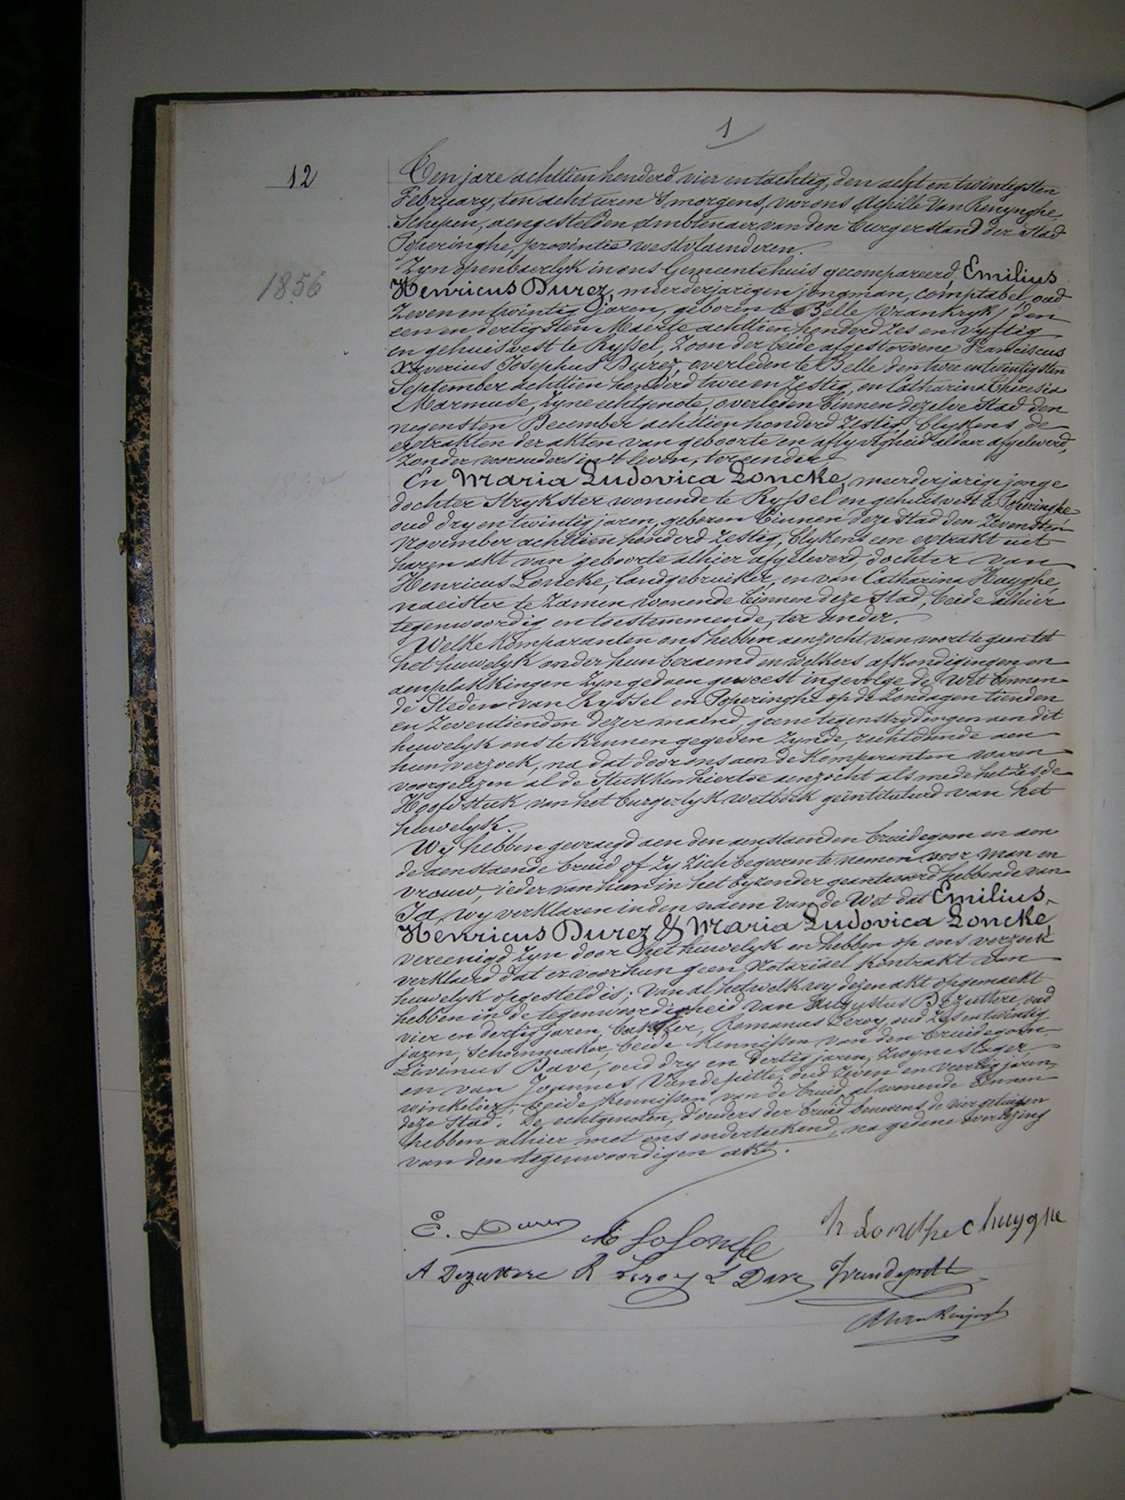 1
12
Ten jare achttien honderd vier en tachtig, den acht en twintigsten
February, ten acht uren 's morgens, voor ons Achille Van Renynghe,
Schepen, aengestelden Ambtenaer van den burgerstand der Stad
Poperinghe, provintie westvlaenderen.
Zyn openbaerlyk in ons Gemeentehuis gecompareerd, Emilius
1856
Henricus Durez, meerderjarigen jongman, comptabel, oud
Zeven en twintig jaren, geboren te Belle (vrankryk) den
een en dertigsten Maerte achttien honderd zes en vyftig
en gehuisvest te Ryssel, Zoon der beide afgestorvene Franciscus
Xaverius Josephus Durez, overleden te Belle den twee en twintigsten
September achttien honderd twee en zestig, en Catharina Theresia
Marmuse, zyne echtgenote, overleden binnen dezelve Stad den
negensten December achttien honderd zestig, blykens de
extrakten der akten van geboorte en aflyvigheid aldaar afgeleverd,
zonder vorouders in 't leven, ter eender
En Maria Ludovica Loncke, meerderjarige jonge
dochter Strykster wonende te Ryssel, en gehuisvest te Poperinghe
oud dry en twintig jaren, geboren binnen deze Stad den Zevensten
November achttien honderd zestig, blykens een extrakt uit
haren akt van geboorte alhier afgeleverd, dochter van
Henricus Loncke, landgebruiker, en van Catharina Huyghe,
naeister te zamen wonende binnen deze Stad, beide alhier
tegenwoordig en toestemmende, ter ander.
Welke Komparanten ons hebben aenzocht van voort te gaen tot
het huwelyk onder hun beraemd en welkers afkondigingen en
aenplakkingen zyn gedaen geweest ingevolge de Wet binnen
de Steden van Ryssel en Poperinghe op de Zondagen tienden
en Zeventienden dezer maend, geene tegenstrydingen aen dit
huwelyk ons te kennen gegeven zynde, rechtdoende aen
hun verzoek, na dat door ons aen de Komparanten waren
voorgelezen al de Stukken hiertoe aenzocht als mede het zesde
Hoofdstuk van het burgerlyk wetboek geïntituleerd van het
huwelyk.
Wy hebben gevraegd aen den aenstaenden bruidegom en aen
de aenstaende bruid of zy zich begeeren te nemen voor man en
vrouw, ieder van hun in het byzonder geantwoord hebbende van
Ja, wy verklaren in den naem van de Wet dat Emilius
Henricus Durez & Maria Ludovica Loncke,
vereenigd zyn door het huwelyk en hebben op ons verzoek
verklaerd dat er voor hun geen Notariael Kontrakt van
huwelyk opgesteld is; van al hetwelk wy dezen akt opgemaekt
hebben in de tegenwoordigheid van Augustus Dezuttere, oud
vier en dertig jaren, bakker, Romanus Leroy, oud zes en twintig
jaren, Schoenmaker, beide Kennissen van den bruidegom
Livinus Dave, oud dry en dertig jaren, Zwyneslager,
en van Joannes Vandepitte, oud zeven en veertig jaren,
winkelier, beide Kennissen van de bruid, al wonende binnen
deze Stad. De echtgenoten, d'ouders der bruid benevens de vier getuigen
hebben alhier met ons onderteekend, na gedane voorlezing
van den tegenwoordigen akt.
E. Durez M L Loncke h Loncke c huyghe
A Dezuttere R Leroy L Dave J vandepitte
A Van Renynghe